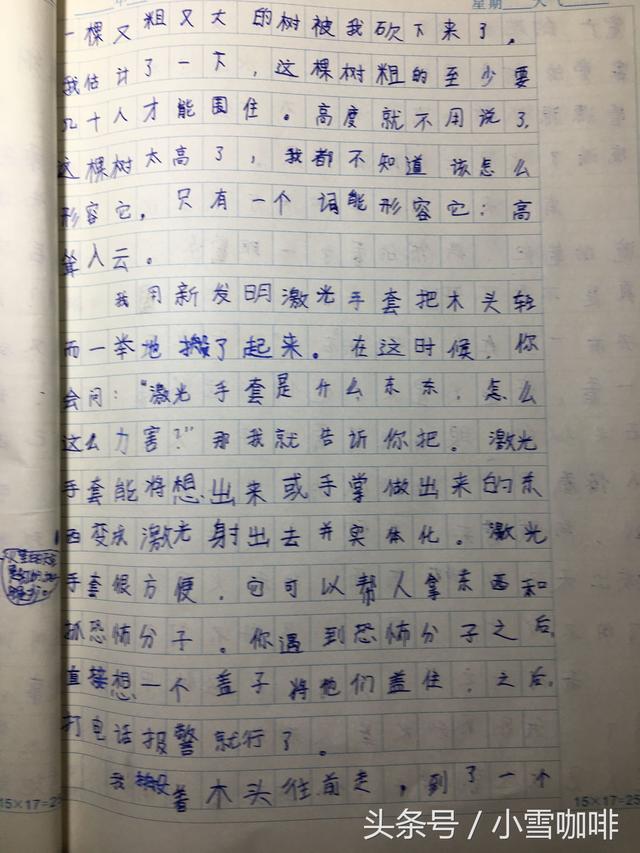 星期 天气
一棵又粗又大的树被我砍下来了，
我估计了一下，这棵树粗的至少要
几十人才能围住。高度就不用说了，
这棵树太高了，我都不知道该怎么
形容它，只有一个词能形容它：高
耸入云。
我用新发明激光手套把木头轻
而一举地搬了起来。在这时候，你
会问：“激光手套是什么东东，怎么
这么力害？”那我就告诉你把。激光
手套能将想出来或手掌做出来的东
西变成激光射出去并实体化。激光
手套很方便，它可以帮人拿东西和
抓恐怖分子。你遇到恐怖分子之后，
直接想一个盖子将他们盖住，之后，
打电话报警就行了。
我搬着木头往前走，到了一个
15×17=25
15×17=25
头条号／小雪咖啡